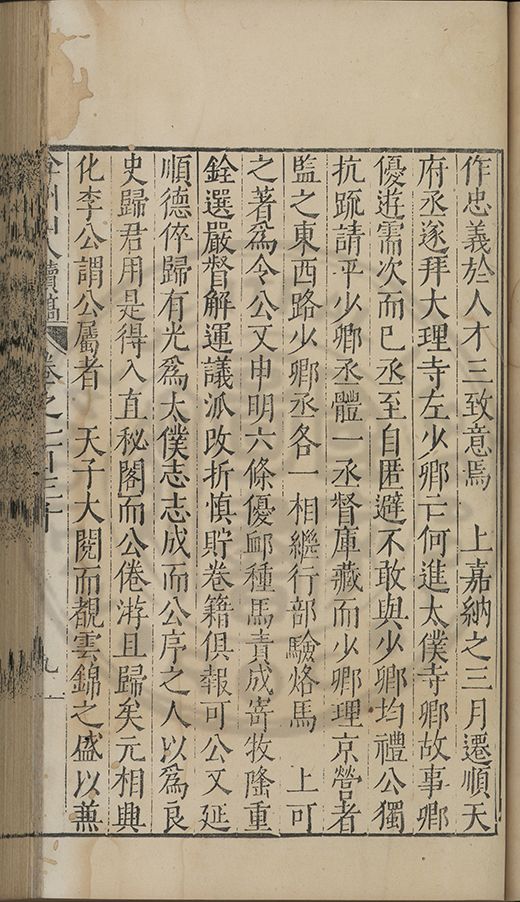 作忠義於人才三致意焉　上嘉納之三月遷順天
府丞遂拜大理寺左少卿亡何進太僕寺卿故事卿
優遊需次而已丞至自匿避不敢與少卿均禮公獨
抗疏請平少卿丞體一丞督庫藏而少卿理京營者
監之東西路少卿丞各一相繼行部驗烙馬　上可
之著為令公又申明六條優卹種馬責成寄牧隆重
銓選嚴督解運議派改折慎貯卷籍俱報可公又延
順德倅歸有光為太僕志志成而公序之人以為良
史歸君用是得入直秘閣而公倦游且歸矣元相興
化李公謂公屬者　天子大閱而覩雲錦之盛以兼
弇州山人續稿　卷之一百三十　九